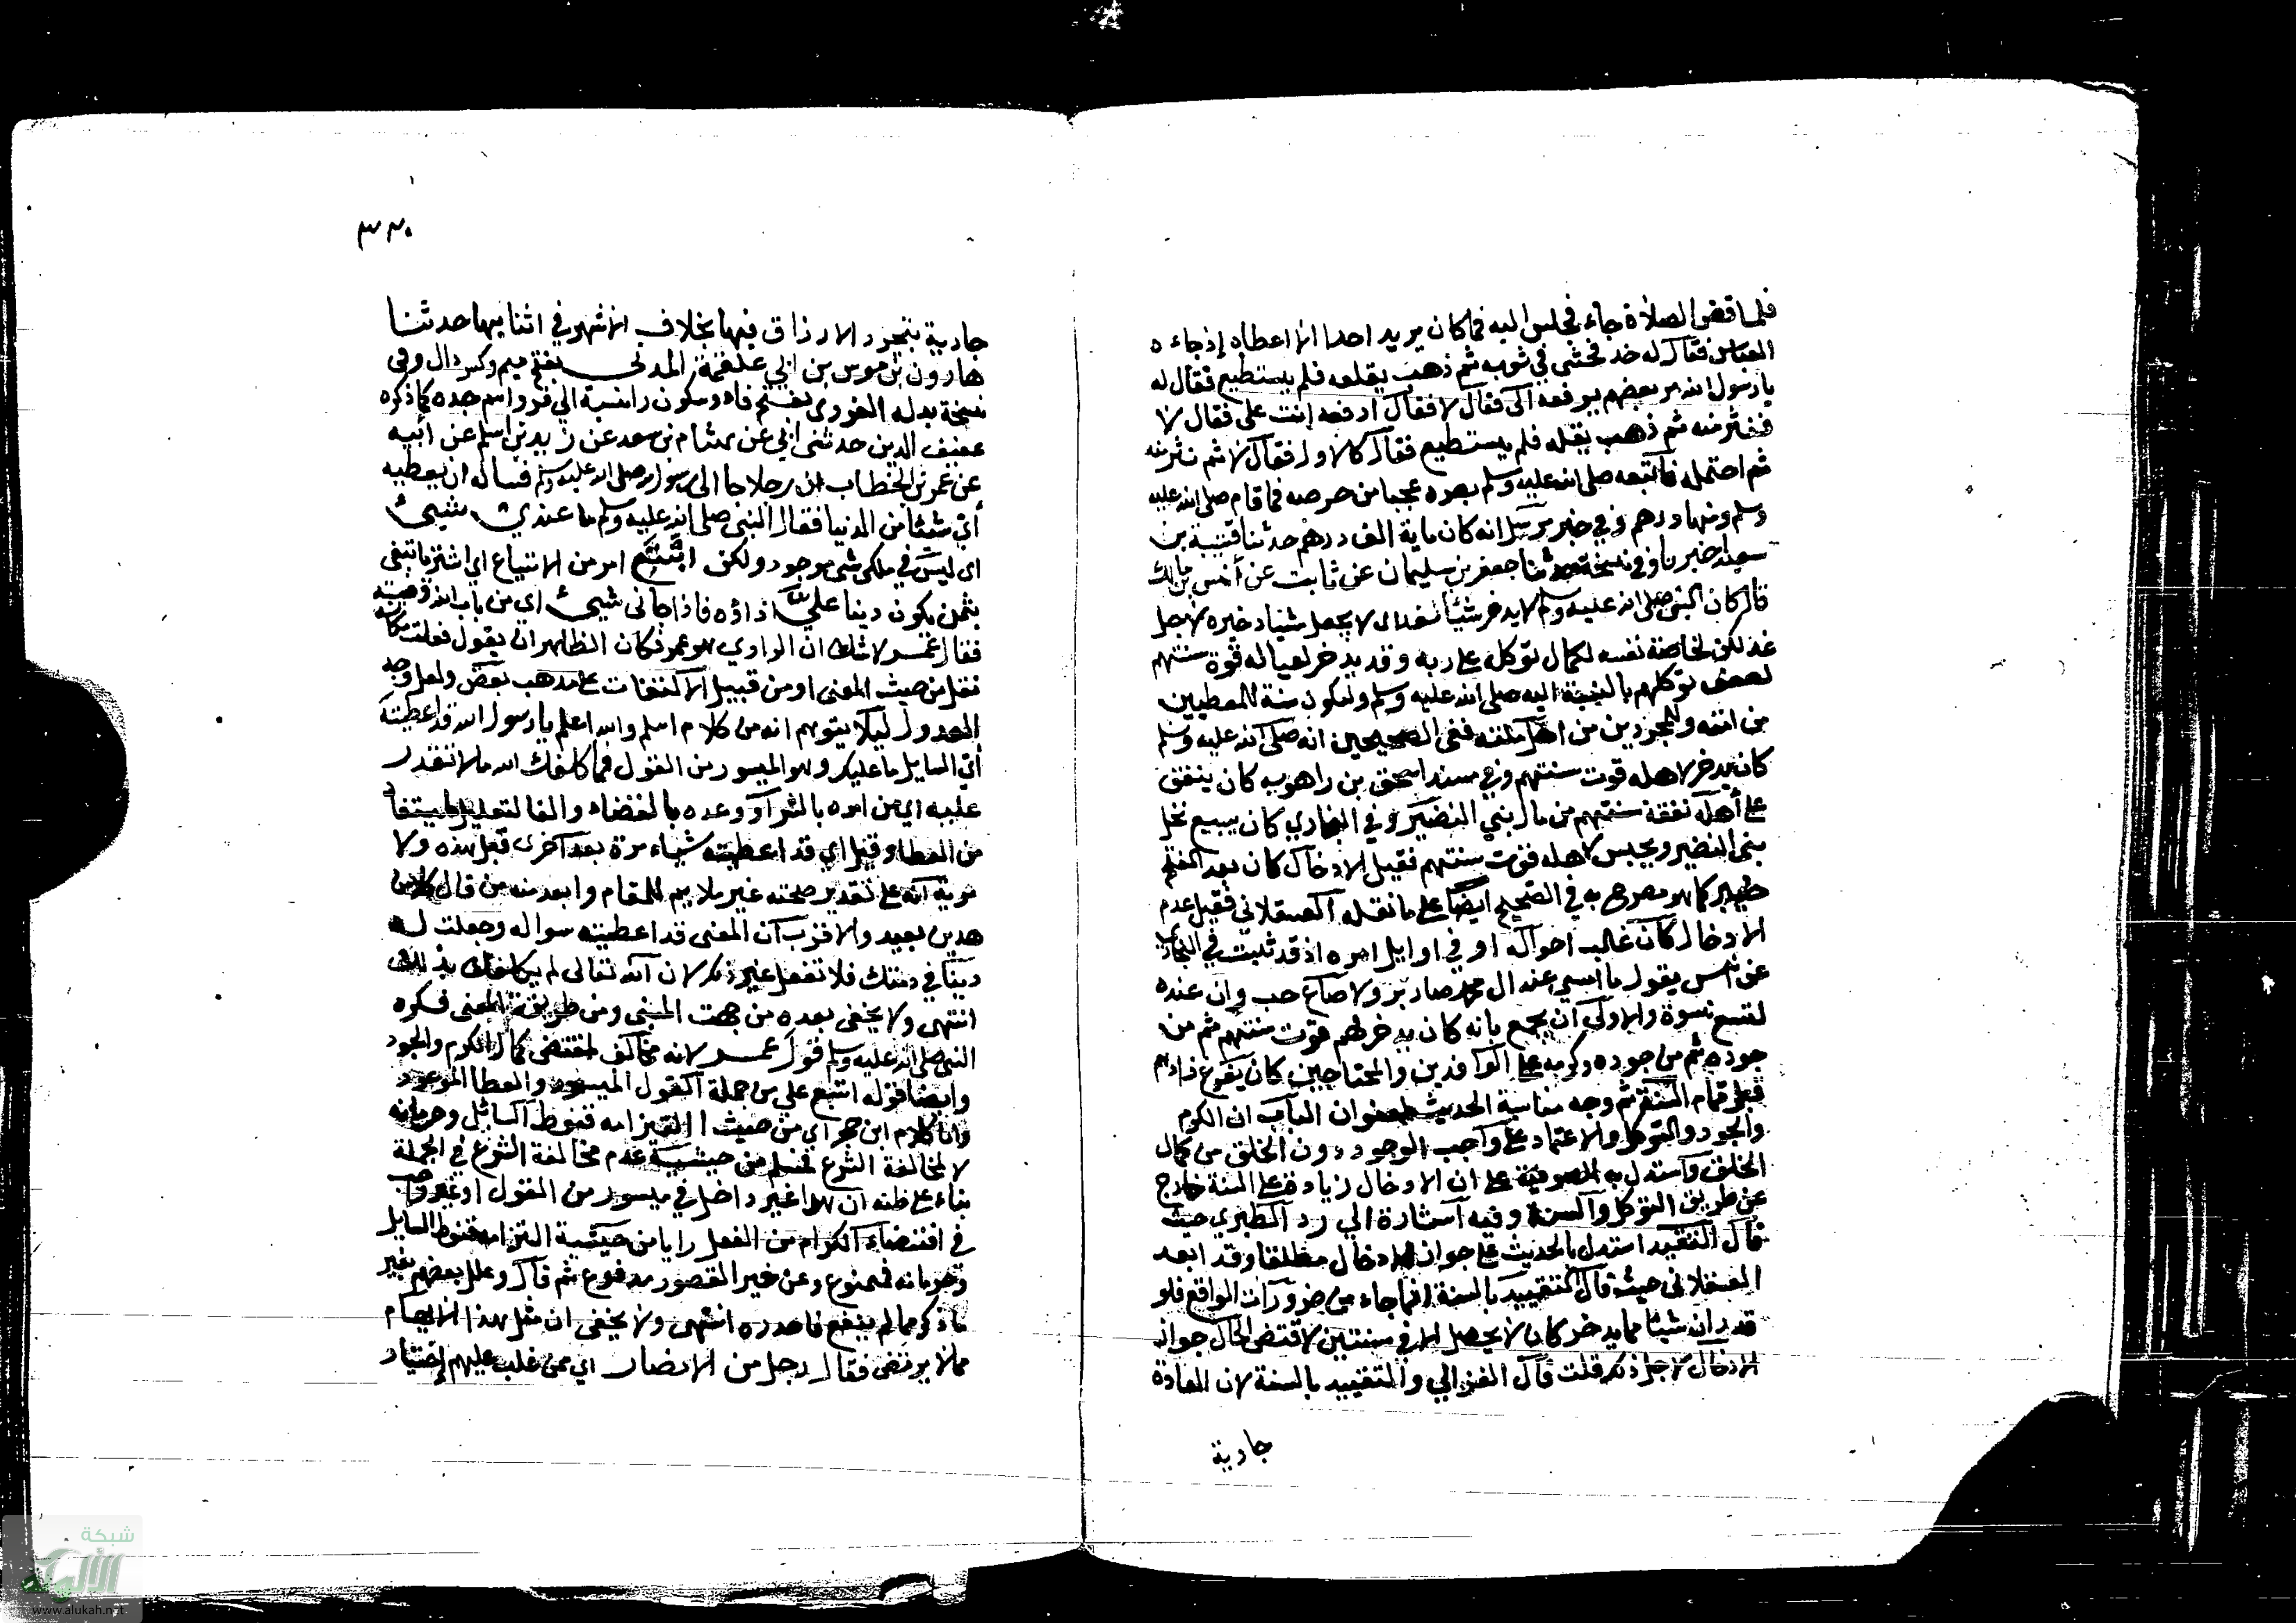 فلما قضى الصلاة جاء فجلس اليه فما كان يريد احدا الا اعطاه إذ جاءه
العباس فقال له خذ فحثى في ثوبه ثم ذهب يقله فلم يستطيع فقال له
يا رسول الله مر بعضهم يرفعه الى فقال لا فقال ارفعه انت على فقال لا
فنثر منه ثم ذهب يقله فلم يستطيع فقال كالاول فقال لا ثم نثر منه
ثم احتمله فاتبعه صلى الله عليه وسلم بصره عجبا من حرصه فما قام صلى الله عليه
وسلم ومنها درهم وفي خبر مرسل انه كان ماية الف درهم حدثنا قتيبة بن
سعيد اخبرنا وفي نسخة حدثنا جعفر بن سليمان عن ثابت عن أنس بن مالك
قال كان النبي صلى الله عليه وسلم لا يدخر شيئا لغد اى لا يجعل شيئا ذخيره لاجل
غد لكن لخاصة نفسه لكمال توكله على ربه وقد يدخر لعياله قوة سنتهم
لضعف توكلهم بالنسبة اليه صلى الله عليه وسلم وليكون سنة للمعطيين
من امته وللمجردين من اهل ملته ففى الصحيحين انه صلى الله عليه وسلم
كان يدخر لاهله قوت سنتهم وفي مسند اسحق بن راهويه كان ينفق
على أهله نفقة سنتهم من مال بني النضير وفي البخاري كان يبيع نخل
بنى النضير ويحبس لاهله قوت سنتهم فقيل الادخال كان بعد الفتح
خيبر كما هو مصرح به في الصحيح ايضا على ما نقله العسقلاني فقيل عدم
الادخال كان غالب احواله او في اوايل امره اذ قد ثبت في البخاري
عن انس يقول ما امسى عند ال محمد صاع بر ولا صاع حب وان عنده
لتسع نسوة والاولى ان يجمع بانه كان يدخر لهم قوت سنتهم ثم من
جوده ثم من جوده وكرمه على الوافدين والمحتاجين كان يفرغ زادهم
قبل تمام السنة ثم وجه مناسبة الحديث لعنوان الباب ان الكرم
والجود والتوكل والاعتماد على واجب الوجود دون الخلق من كمال
الخلق واستدل به الصوفية على ان الادخال زيادة على السنة خارج
عن طريق التوكل والسنة وفيه اشارة الى رد الطبري حيث
قال التقييد استدل بالحديث على جواز الادخال مطلقا وقد ابعد
العسقلانى حيث قال التقييد بالسنة انما جاء من ضرورات الواقع فلو
قدر ان شيئا مما يدخر كان لا يحصل الا في سنتين لاقتضى الحال جواز
الادخال لاجل ذلك قلت قال الغزالي والتقييد بالسنة لان العادة
جارية
٣٣٠
جارية بتجرد الارزاق فيها بخلاف الاشهر في اثنايها حدثنا
هارون بن موسى بن ابي علقمة المدنى بفتح ميم وكسر دال وفى
نسخة بدله الفروى بفتح فاء وسكون را نسبة الى فرو اسم جده كما ذكره
عفيف الدين حدثنى ابي عن هشام بن سعد عن زيد بن اسلم عن ابيه
عن عمر بن الخطاب ان رجلا جا الى رسول الله صلى الله عليه وسلم فساله ان يعطيه
أي شيئا من الدنيا فقال النبي صلى الله عليه وسلم ما عندى شيئ
اى ليس في ملكى شئ موجود ولكن ابتع امر من الابتياع اى اشتر ما تبغى
بثمن يكون دينا علي اداؤه فاذا جانى شيئ اى من باب الله قضيته
فقال عمر لا شك ان الراوي هو عمر فكان الظاهر ان يقول فقلت فكانه
نقل من حيث المعنى او من قبيل الالتفات على مذهب بعض ولعل وجه
العدول ليلا يتوهم انه من كلام اسلم والله اعلم يا رسول الله قد اعطيته
أي السايل ما عليك وهو الميسور من القول فما كلفك الله ما لا تقدر
عليه اي من امره بالشرا ووعده بالقضاء والفا لتعليل ما يستفاد
من العطا وقيل اي قد اعطيته شياء مرة بعد اخرى قبل هذه ولا
مرية انه على تقدير صحته غير ملايم للمقام وابعد منه من قال كلا من
هذين بعيد والاقرب ان المعنى قد اعطيته سواله وجعلت له
دينا في ذمتك فلا تفعل غير ذلك لان الله تعالى لم يكلفك بذلك
انتهى ولا يخفى بعده من جهت المبنى ومن طريق المعنى فكره
النبى صلى الله عليه وسلم قول عمر لانه مخالف لمقتضى كمال الكرم والجود
وايضا قوله ابتع على من جملة القول الميسور والعطا الموعود
واما كلام ابن حجر اي من حيث التزامه قنوط السائل وحرمانه
لا لمخالفة الشرع فمسلم من حيثية عدم مخالفة الشرع في الجملة
بناء على ظنه ان هذا غير داخل في ميسور من القول او غير واجب
في اقتضاء الكرام من الفعل را يا من حيثية التزامه قنوط السايل
وحرمانه فممنوع وعن خير المقصور مدفوع ثم قال وعلل بعضهم بغير
ما ذكر مما لم ينفع فاحذره انتهى ولا يخفى ان مثل هذا الابهام
مما لا يرتضى فقال رجل من الانصار اى ممن غلب عليهم اختيار
شبكة
الألوكة
www.alukah.net